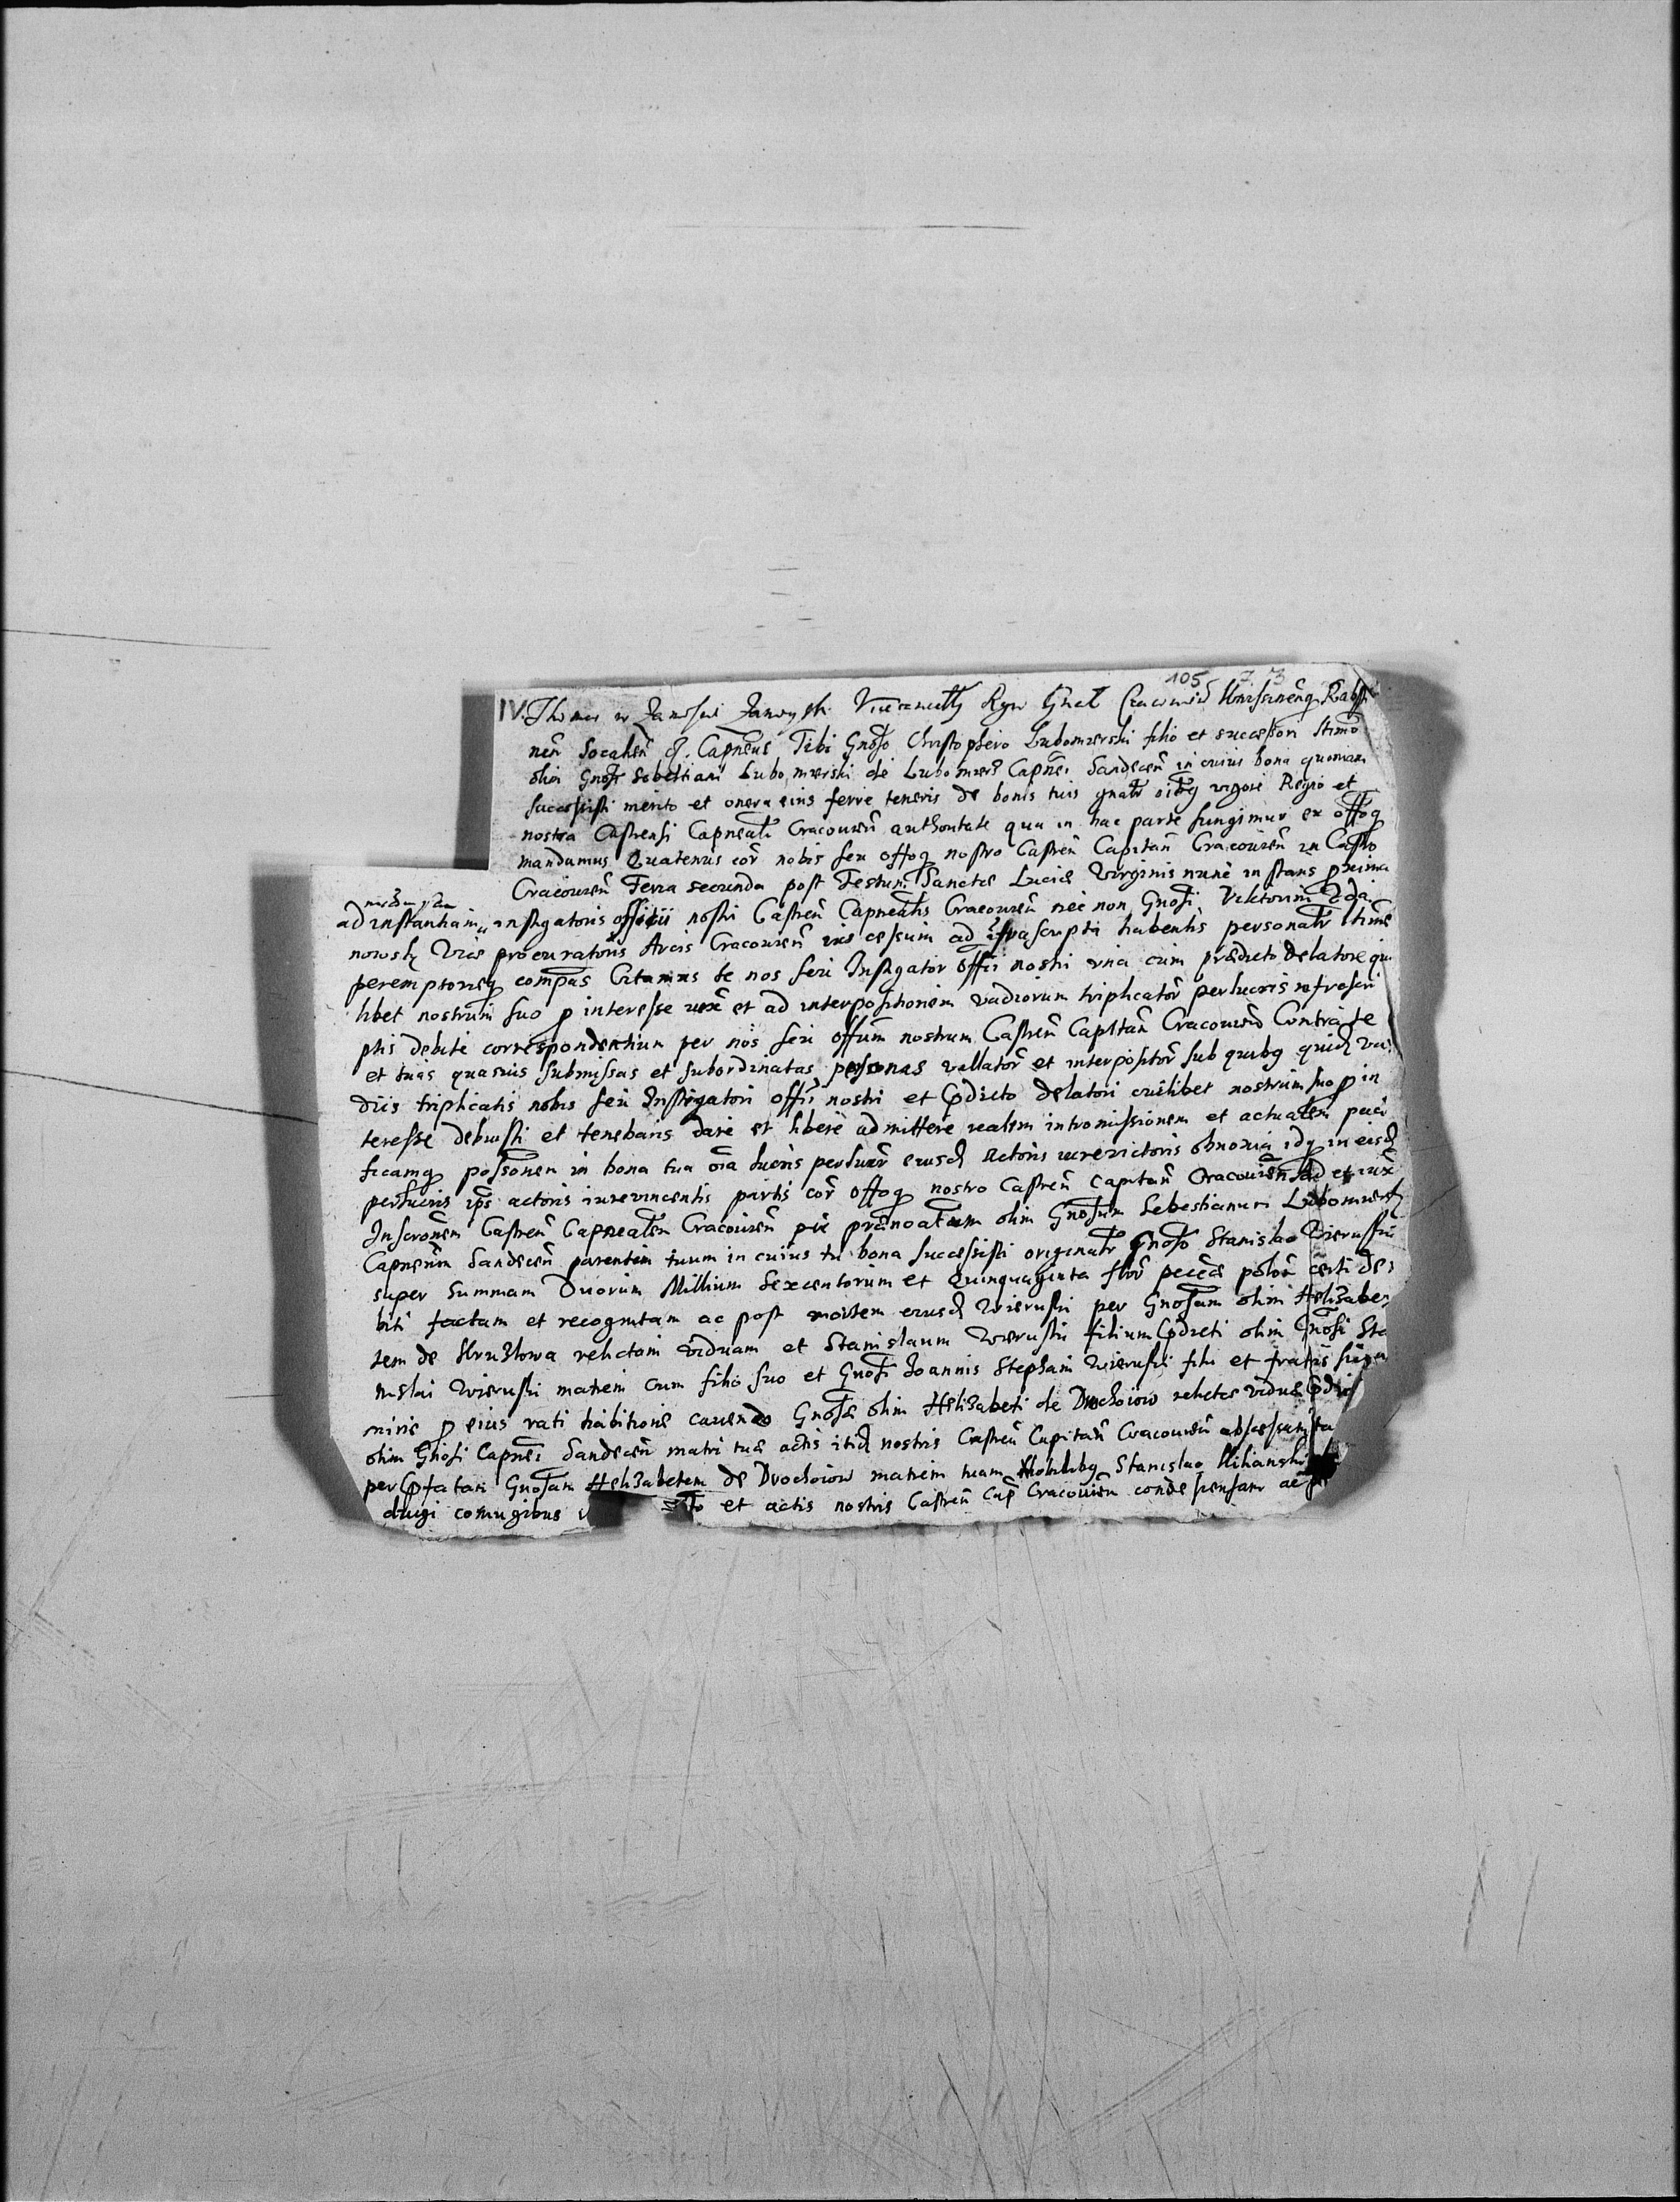 105 7. 3
IV. Thomas in Zamoscie Zamoyski Vicecancell Regni Gnal Cracovien Rabsti
nen Socalen q. Capneus Tibi Gnoso Christophero Lubomirski filio et successori ltimo
olim Gnosi Sebastiani Lubomirski de Lubomierz Capnei Sandecen in cuius bona quoniam
successisti merito et onera eius ferre teneris de bonis tuis gnatr oibq vigore Regio et
nostra Castrensi Capneali Cracovien authoritate qua in hac parte fungimur ex offoq
mandamus Quatenus cor nobis seu offoq nostro Castren Capitan Cracovien in Castro
Cracovien Feria secunda post Festum Sanctae Luciae Virginis nunc instans proxima
ad instantiam instigatoris officii nostri Castren Capnealis Cracovien nec non Gnosi Viktorini Zdza
nowski Vice procuratoris Arcis Cracovien ius cessum ad infrascripta habentis personalr ltime
peremptorieq compas Citamus te nos seu Instigator offii nostri una cum praedicto delatore qui
libet nostrum suo p interesse iux et ad interpositionem vadiorum triplicator perlucris infrascri
ptis debite correspondentium per nos seu offum nostrum Castren Capitan Cracovien Contra te
et tuas quasvis submissas et subordinatas personas vallator et interpositor sub quibq quid va
diis triplicatis nobis seu Instigatori offii nostri et pdicto delatori cuilibet nostrum suo p in
teresse debuisti et tenebaris dare et libere admittere realem intromissionem et actualem paci
ficamq possonem in bona tua oia lucris perlucr eiusd Actoris iurevictoris obnoxia idq in eisd
perlucris ips actoris iurevincentis partis cor offoq nostro Castren Capitan Cracovien ad et iux
Inscronem Castren Capnealem Cracovien per praenoatum olim Gnosum Sebestianum Lubomirski
Capneum Sandecen parentem tuum in cuius tu bona successisti originalr Gnoso Stanislao Wierusski
super Summam Duorum Millium Sexcentorum et Quinquaginta flor pecciae polon certi de
biti factam et recognitam ac post mortem eiusd Wieruski per Gnosam olim Helizabe
tem de Hruszowa relictam viduam et Stanislaum Wieruski filium pdicti olim Gnosi Sta
nislai Wieruski matrem cum filio suo et Gnosi Joannis Stephani Wieruski filii et fratris
minis p eius rati habitione cavendo Gnosae olim Helizabeti de Drochoiow relictae viduae pdicti
olim Gnosi Capnei Sandecen matri tuae actis itid nostris Castren Capitan Cracovien
per pfatam Gnosam Helizabetem de Drochoiow matrem tuam Stanislao Kilianski
coniugibus et actis nostris Castren Cap Cracovien